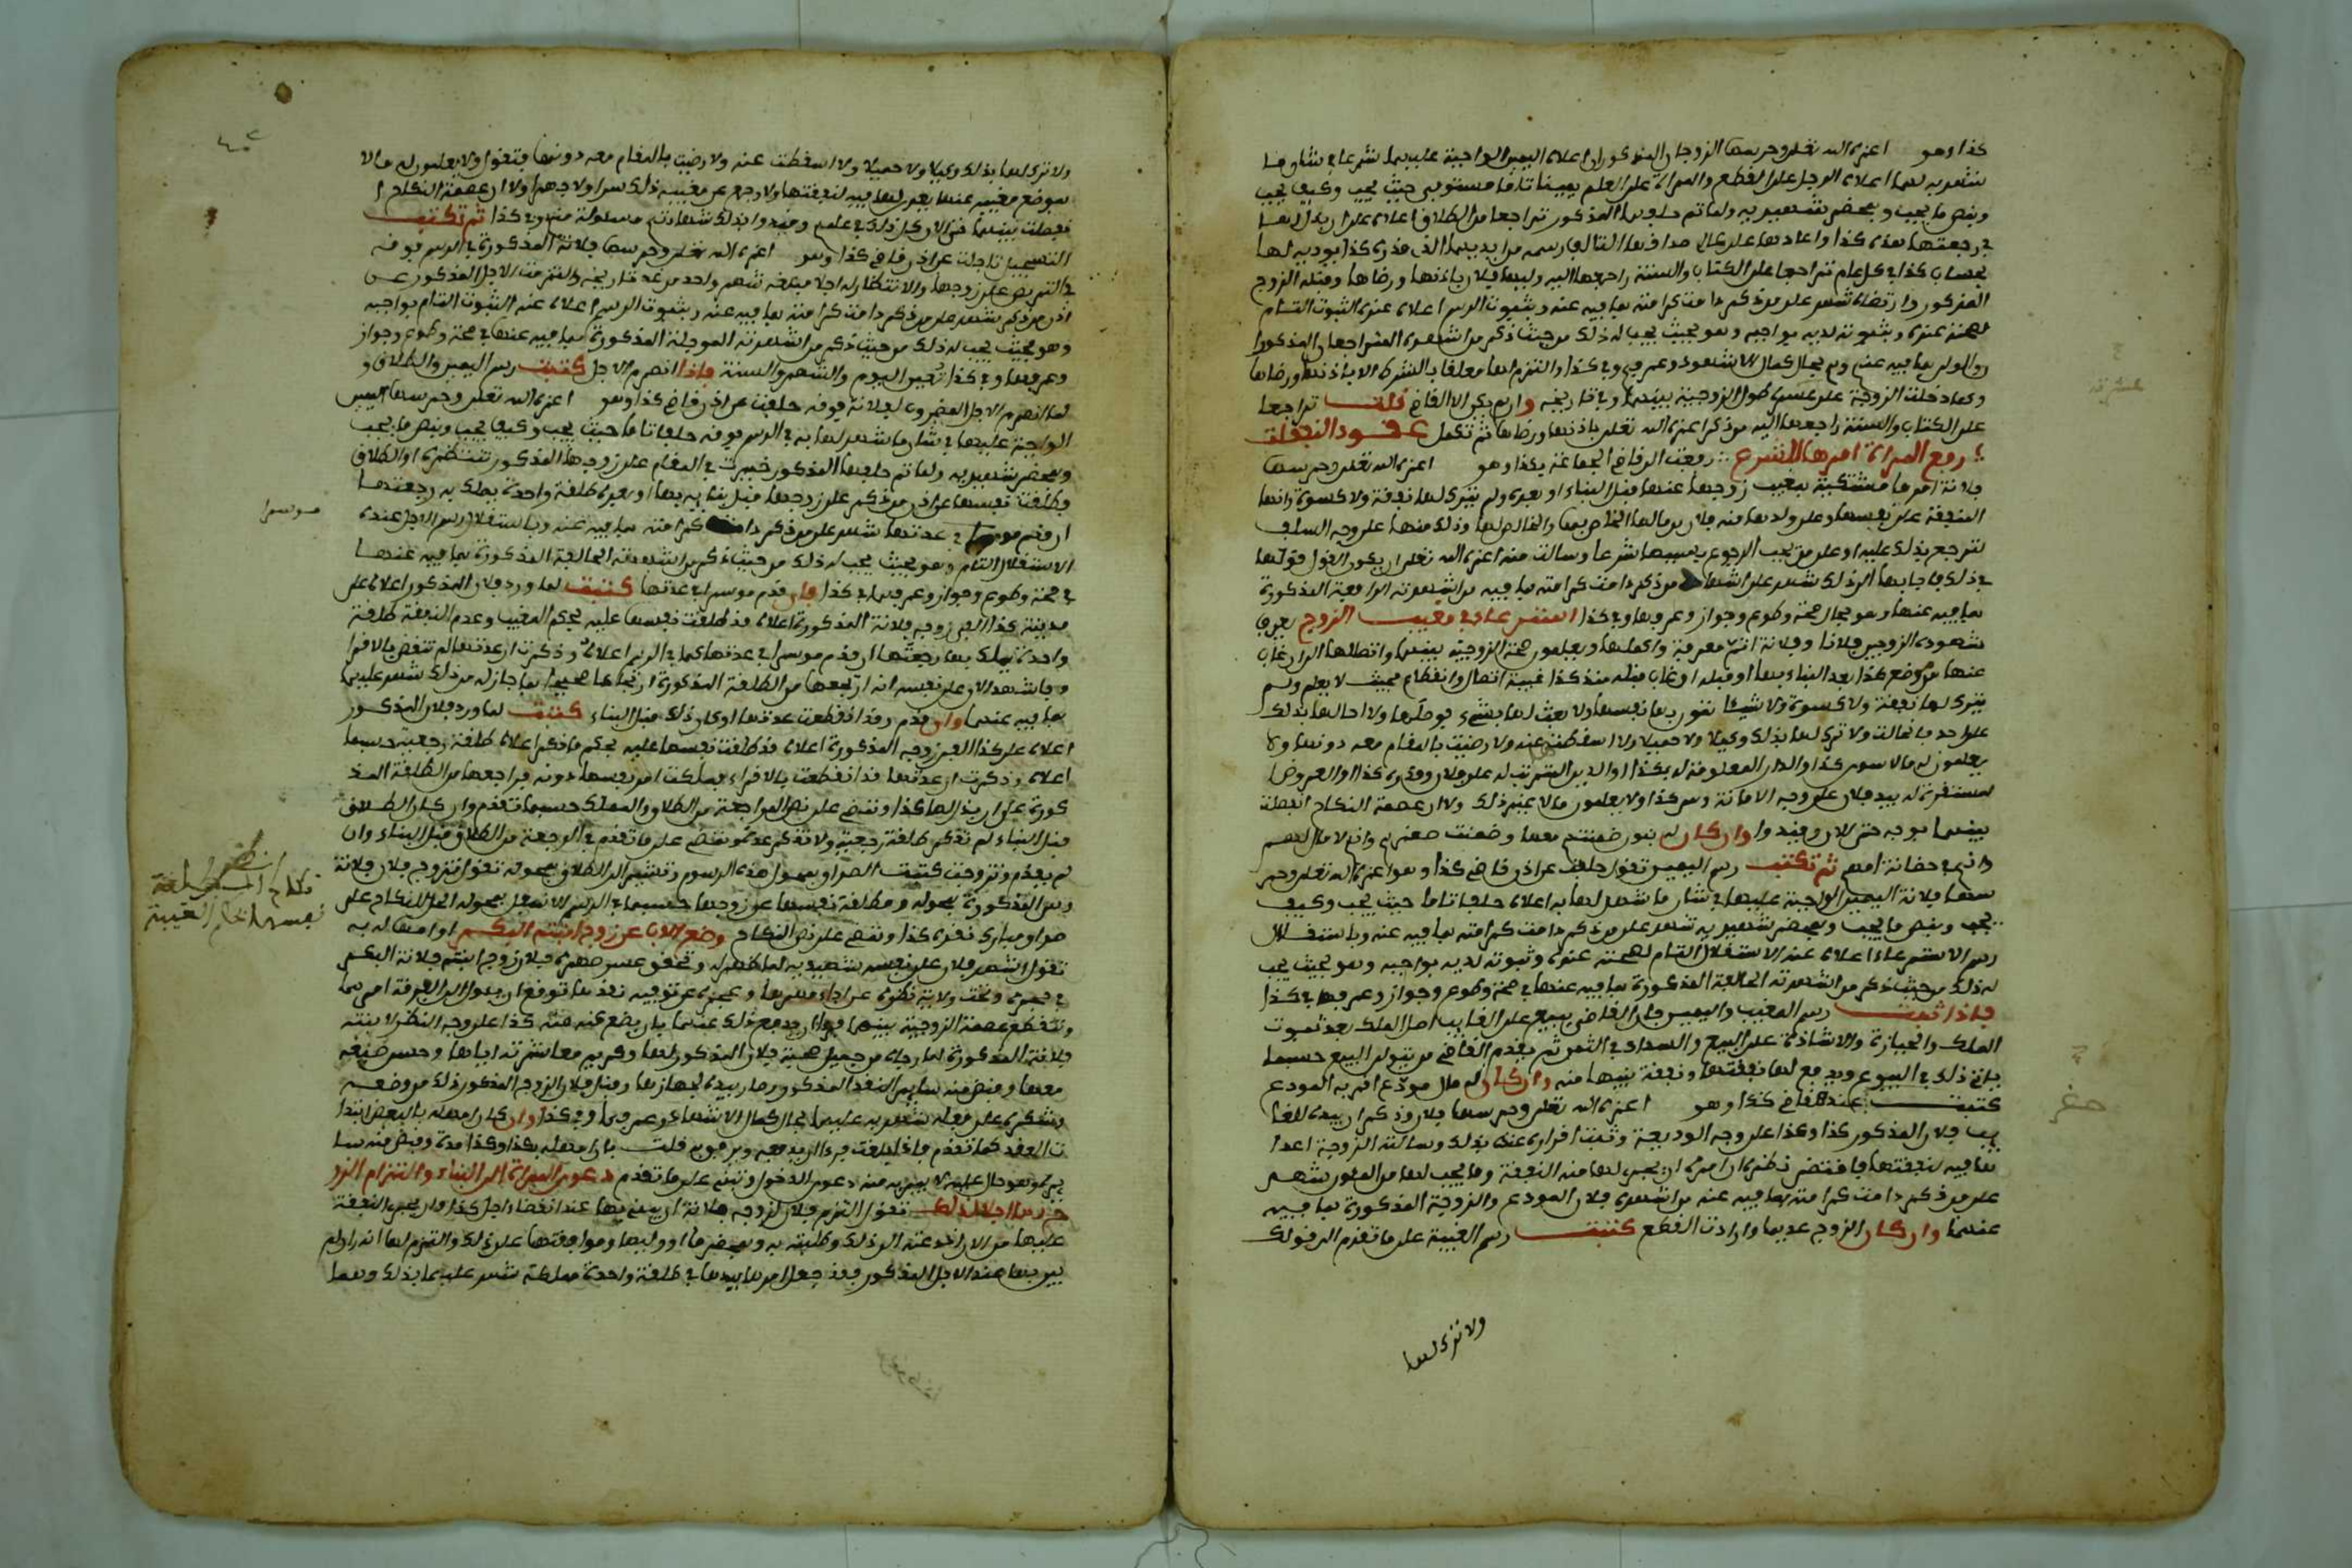 كذا وهو اعزه الله تعلى وحرسها الزوجان المذكوران اعلاه اليمين الواجبة عليهما شرعا في شان ما
شهد به لهما اعلاه الرجل على القطع والمراة على العلم يمينا تاما مستوفى حيث يجب وكيف يجب
وبنص ما يجب وبمحضر شهيديه ولما تم حلفهما المذكور تراجعا من الطلاق اعلاه على ان بذل لها
في رجعتها هذه كذا واعادها على كالئ صداقها التالف رسمه من ايديهما الذي قدره كذا يوديه لها
بحساب كذا في كل عام تراجعا على الكتاب والسنة راجعها اليه وليها فلان باذنها ورضاها وقبله الزوج
المذكور وارتضاه شهد على من ذكر دامت كرامته بما فيه عنه وبثبوت الرسم اعلاه عنده الثبوت التام
لصحته عنده وبثبوته لديه بواجبه وهو بحيث يجب له ذلك من حيث ذكر من اشهده المتراجعان المذكوران
والولي بما فيه عنهم وهم بحال كمال الاشهاد وعرفهم وفي كذا والتزم لها معلقا بالشرط الا باذنها ورضاها
وكما دخلت الزوجة على طول الزوجية بينهما وفي تاريخه وان لم يكن الا القاضي قلت تراجعا
على الكتاب والسنة راجعها اليه من ذكر اعزه الله تعلى باذنها ورضاها ثم تكمل عقود النفقات
رفع المراة امرها للشرع رفعت الى قاضي الجماعة بكذا وهو اعزه الله تعلى وحرسها
فلانة امرها مشتكية بمغيب زوجها عنها قبل البناء او بعده ولم يترك لها نفقة ولا كسوة وانها
المنفقة على نفسها وعلى ولدها منه فلان من مالها الخاص بها والخالص لها وذلك منها على وجه السلف
لترجع بذلك عليه او على من يجب الرجوع بسببها شرعا وسالت منه اعزه الله تعلى ان يكون القول قولها
في ذلك فاجابها الى ذلك شهد على اشهاد من ذكر دامت كرامته بما فيه من اشهدته الرافعة المذكورة
بما فيه عنها وهو بحال صحة وطوع وجواز وعرفها وفي كذا استرعاء في مغيب الزوج يعرف
شهوده الزوجين فلانا وفلانة اتم معرفة واكملها ويعلمون صحة الزوجية بينهما واتصالها الى ان غاب
عنها من موضع كذا بعد البناء بها او قبله او غاب قبله منذ كذا غيبة اتصال وانقطاع بحيث لا يعلم ولم
يترك لها نفقة ولا كسوة ولا شيئا تقوم بها نفسها ولا بعث لها بشيء فوصلها ولا احالها بذلك
على احد فاحالت ولا ترك لها بذلك وكيلا ولا حميلا ولا اسقطت عنه ولا رضيت بالمقام معه دونها ولا
يعلمون له مالا سوى كذا والدار المعلومة له بكذا او الدين المترتب له على فلان وقدره كذا او العروض
المستقرة له بيد فلان على وجه الامانة وهي كذا ولا يعلمون مالا غير ذلك ولا ان عصمة النكاح انفصلت
بينهما بوجه حتى الان وقيدوا وان كان له بنون ضمنتهم معها وضمنت صغرهم وانهم لا مال لهم
وانهم في حضانة امهم ثم تكتب رسم اليمين تقول حلفت عن اذن قاضي كذا وهو اعزه الله تعلى وحر
سها فلانة اليمين الواجبة عليها في شان ما شهد لها به اعلاه حلفا تاما حيث يجب وكيف
يجب وبنص ما يجب وبمحضر شهيديه شهد على من ذكر دامت كرامته بما فيه عنه وباستقلال
رسم الاسترعاء اعلاه عنده الاستقلال التام لصحته عنده وثبوته لديه بواجبه وهو بحيث يجب
له ذلك من حيث ذكر من اشهدته الحالفة المذكورة بما فيه عنها في صحة وطوع وجواز وعرفها في كذا
فاذا ثبت رسم المغيب واليمين فان القاضي يبيع على الغايب اصل الملك بعد ثبوت
الملك والحيازة والاشادة على البيع والسداد في الثمن ثم يقدم القاضي من يتولى البيع حسبما
ياتي ذلك في البيوع ويدفع لها نفقتها ونفقة بنيها منه وان كان له مال مودع اقر به المودع
كتبت عند قاضي كذا وهو اعزه الله تعلى وحرسها فلان وذكر ان بيده للغا
يب فلان المذكور كذا وكذا على وجه الوديعة وثبت اقراره عنده بذلك وسالته الزوجة اعدا
بما فيه لنفقتها فاقتضى نظره ان امره ان يجري لها منه النفقة وما يجب لها من المون شهد
على من ذكر دامت كرامته بما فيه عنه من اشهده فلان المودع والزوجة المذكورة بما فيه
عنهما وان كان الزوج عديما وارادت القطع كتبت رسم الغيبة على ما تقدم الى قولك
ولا ترك لها
ولا ترك لها بذلك وكيلا ولا حميلا ولا اسقطت عنه ولا رضيت بالمقام معه دونها فتقول ولا يعلمون له مالا
بموضع مغيبه عنها يعدى لها فيه لنفقتها ولا رجع من مغيبه ذلك سرا ولا جهرا ولا ان عصمة النكاح ا
نفصلت بينهما حتى الان كل ذلك في علمهم وقيدوا بذلك شهادتهم مسئولة منهم وفي كذا ثم تكتب
التسجيل تاجلت عن اذن قاضي كذا وهو اعزه الله تعلى وحرسها فلانة المذكورة في الرسم فوقه
في التربص على زوجها والانتظار له اجلا مبلغه شهر واحد من غد تاريخه والتزمت الاجل المذكور عن
اذن من ذكر شهد على من ذكر دامت كرامته بما فيه عنه وبثبوت الرسم اعلاه عنه الثبوت التام بواجبه
وهو بحيث يجب له ذلك من حيث ذكر من اشهدته الموجلة المذكورة بما فيه عنها في صحة وطوع وجواز
وعرفها وفي كذا تخير اليوم والشهر والسنة فاذا انصرم الاجل كتبت رسم اليمين والطلاق و
لما انصرم الاجل المضروب لفلانة فوقه حلفت عن اذن قاضي كذا وهو اعزه الله تعلى وحرسها اليمين
الواجبة عليها في شان ما شهد لها به في الرسم فوقه حلفا تاما حيث يجب وكيف يجب وبنص ما يجب
وبمحضر شهيديه ولما تم حلفها المذكور خيرت في المقام على زوجها المذكور تنتظره او الطلاق
فطلقت نفسها عن اذن من ذكر على زوجها قبل بنائه بها او بعده طلقة واحدة يملك به رجعتها
ان قدم موسرا في عدتها شهد على من ذكر دامت كرامته بما فيه عنه وباستقلال رسم الاجل عنده
موسرا
الاستقلال التام وهو بحيث يجب له ذلك من حيث ذكر من اشهدته الحالفة المذكورة بما فيه عنها
في صحة وطوع وجواز وعرفها في كذا فان قدم موسرا في عدتها كتبت لما ورد فلان المذكور اعلاه على
مدينة كذا الفى زوجه فلانة المذكورة اعلاه قد طلقت نفسها عليه بحكم المغيب وعدم النفقة طلقة
واحدة يملك بها رجعتها ان قدم موسرا في عدتها كما في الرسم اعلاه وذكرت ان عدتها لم تنقض بالاقرا
فاشهد الان على نفسه انه ارتجعها من الطلقة المذكورة ارتجاعا صحيحا بما جاز له من ذلك شهد عليهما
بما فيه عنهما وان قدم وقد انقطعت عدتها او كان ذلك قبل البناء كتبت لما ورد فلان المذكور
اعلاه على كذا الفى زوجه المذكورة اعلاه قد طلقت نفسها عليه بحكم ما ذكر اعلاه طلقة رجعية حسبما
اعلاه وذكرت ان عدتها قد انقطعت بالاقراء فملكت امر نفسها دونه فراجعها من الطلقة المذ
كورة على ان بذل لها كذا وتنص على نص المراجعة من الطلاق والمملك حسبما تقدم وان كان الطلاق
قبل البناء لم تذكر طلقة رجعية ولا تذكر عدة وتنص على ما تقدم في الرجعة من الطلاق قبل البناء وان
لم يقدم وتزوجت كتبت الصداق بمحول هذه الرسوم وتشير الى الطلاق بمحوله تقول تزوج فلان فلانة
وهي المذكورة بمحوله ومطلقة نفسها عن زوجها حسبما في الرسم الاسفل بمحوله الحل للنكاح على
انظر
نكاح المطلقة
نفسها بحكم الغيبة
صداق مبارك نقده كذا وتنص على نص النكاح وضع الاب عن زوج ابنته البكر اوامهاله به
تقول اشهد فلان على نفسه شهيديه لما ظهر له وتحقق عسر صهره فلان زوج ابنته فلانة البكر
في حجره وتحت ولاية نظره عن اداء مهرها وعجزه عن توفيه نقدها توقع ان يئول الى الفرقة امرهما
وتنقطع عصمة الزوجية بينهما فراى رفع ذلك عنهما بان يضع عنه منه كذا على وجه النظر لابنته
فلانة المذكورة لما رجاه من جميل صحبة فلان المذكور لها وكريم معاشرته اياها وحسن صنيعه
معها وقبض منه سائر النقد المذكور وصار بيده لجهازها وقبل فلان الزوج المذكور ذلك من وضعه
وشكره على فعله شهد به عليهما بحال كمال الاشهاد وعرفهما وفي كذا وان كان امهله بالبعض ابتدا
ت العقد كما تقدم فاذا بلغت قلت بان امهله بكذا وكذا مدة وقبض منه سا
ئره وهو حال عليه لا يبريه منه دعوى الدخول وتبنى على ما تقدم دعوى المراة الى البناء والتزام الزو
ج بها اجلا لذلك تقول التزم فلان لزوجه فلانة ان يبني بها عند انقضاء اجل كذا وان يجري النفقة
عليها من الان اذ دعته الى ذلك وطلبته به وبمحضرها او وليها وموافقتها على ذلك والتزم لها انه ان لم
يبن بها عند الاجل المذكور فقد جعل امرها بيدها في طلقة واحدة مملكة شهد عليهما بذلك وهما